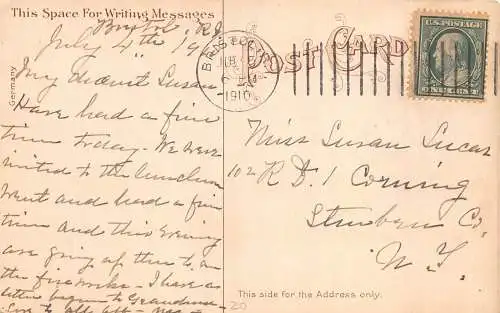 This Space For Writing Messages
Bristol, R.I.
July 4th 19
My dearest Susan,
Have had a fine
time today. We were
invited to the luncheon
went and had a fine
time and this evening
are going up there to see
the fireworks - I have a
letter begun to Grandma
Love to all
Germany
BRISTOL
6 PM
1910
POST CARD
U.S. POSTAGE
ONE CENT
Miss Susan Lucas
102 R.D. 1 Corning
Steuben Co.
N.Y.
This side for the Address only.
20